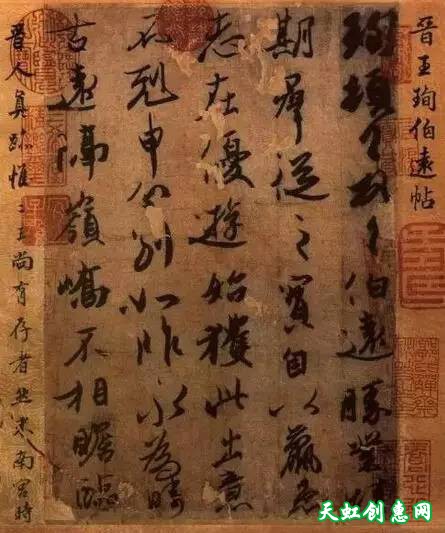 晉王珣伯遠帖
珣頓首頓首伯遠勝業情
期群從之寶自以羸患
志在優遊始獲此出意
不剋申分別如昨永為疇
古遠隔嶺嶠不相瞻臨
晉人真跡惟二王尚有存者然米南宮時
天虹创惠网